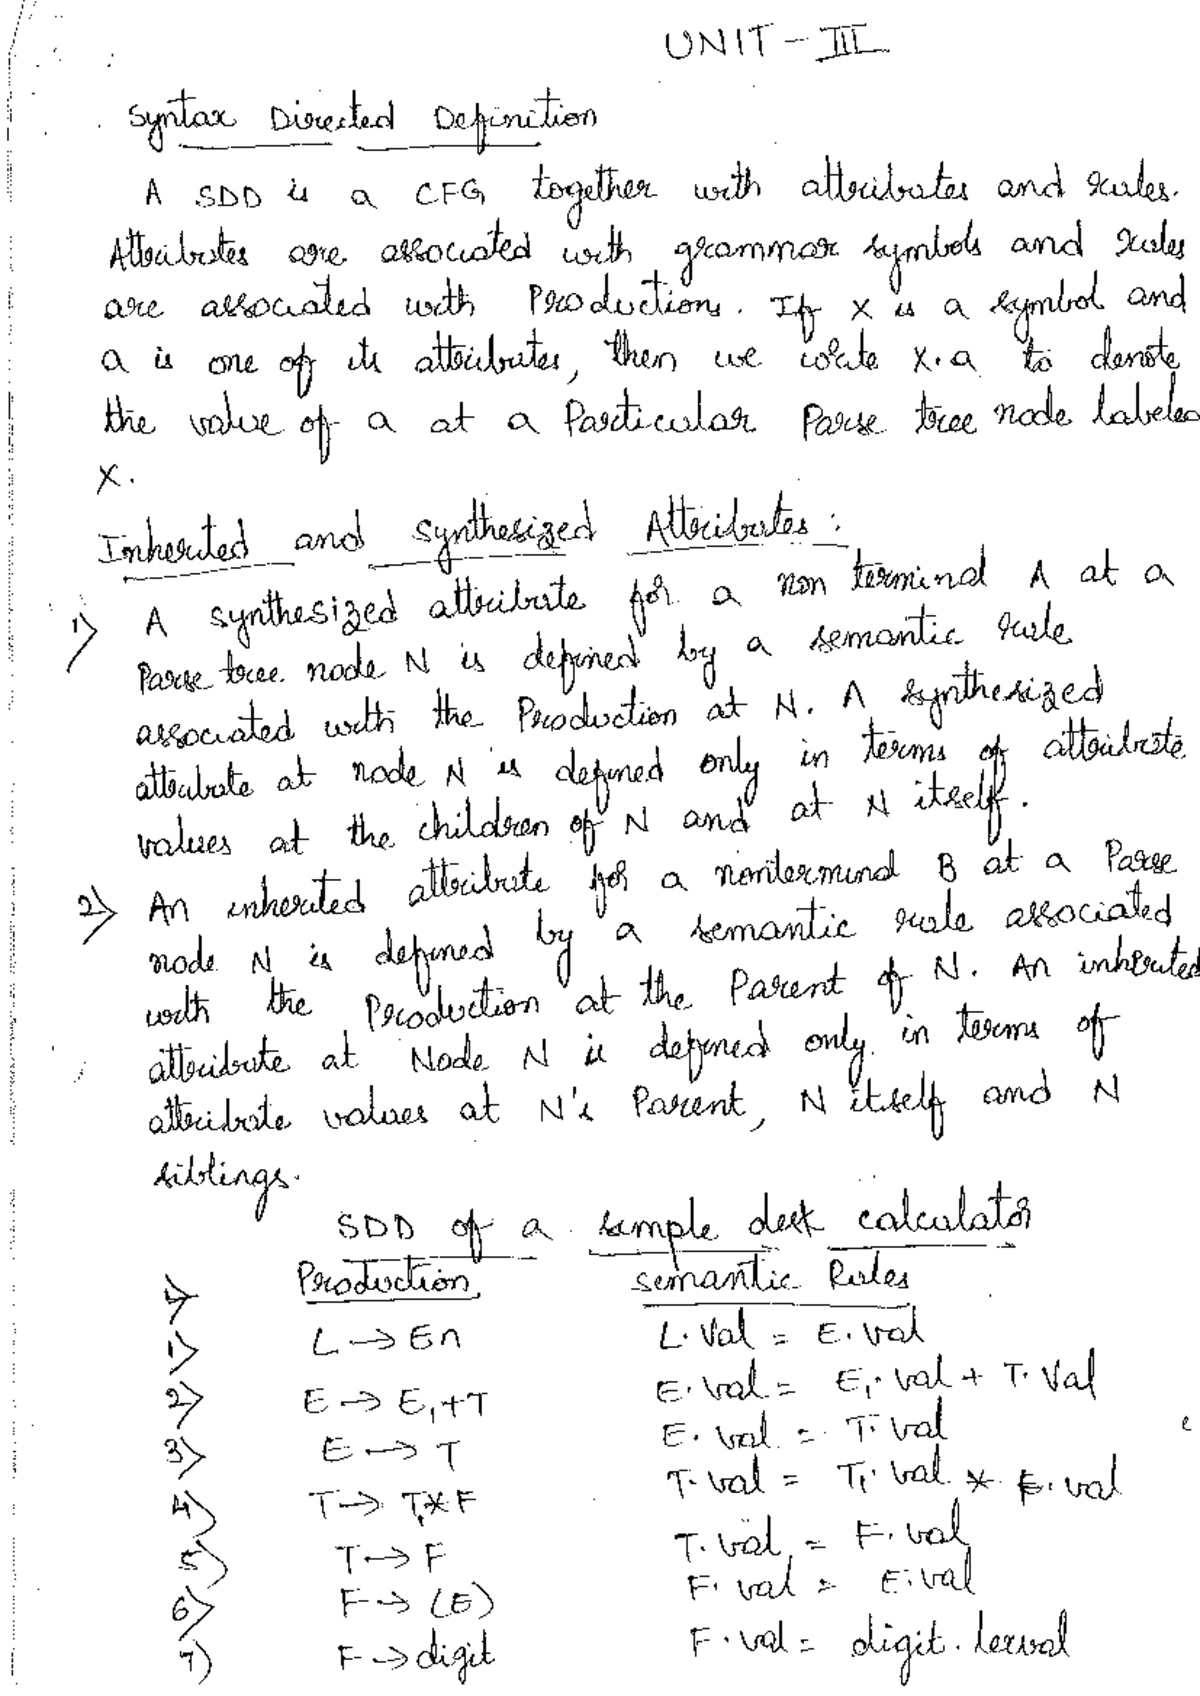 UNIT - III
Syntax Directed Definition
A SDD is a CFG together with attributes and rules.
Attributes are associated with grammar symbols and rules
are associated with Productions. If X is a symbol and
a is one of its attributes, then we write X.a to denote
the value of a at a Particular Parse tree node labeled
X.
Inherited and Synthesized Attributes:
1) A synthesized attribute for a non terminal A at a
Parse tree node N is defined by a semantic rule
associated with the Production at N. A synthesized
attribute at node N is defined only in terms of attribute
values at the children of N and at N itself.
2) An inherited attribute for a nonterminal B at a Parse
node N is defined by a semantic rule associated
with the Production at the Parent of N. An inherited
attribute at Node N is defined only in terms of
attribute values at N's Parent, N itself and N
siblings.
SDD of a simple desk calculator
Production Semantic Rules
1) L → En L.Val = E.val
2) E → E₁+T E.val = E₁.val + T.Val
3) E → T E.val = T.val
4) T → T₁*F T.val = T₁.val * F.val
5) T → F T.val = F.val
6) F → (E) F.val = E.val
7) F → digit F.val = digit.lexval